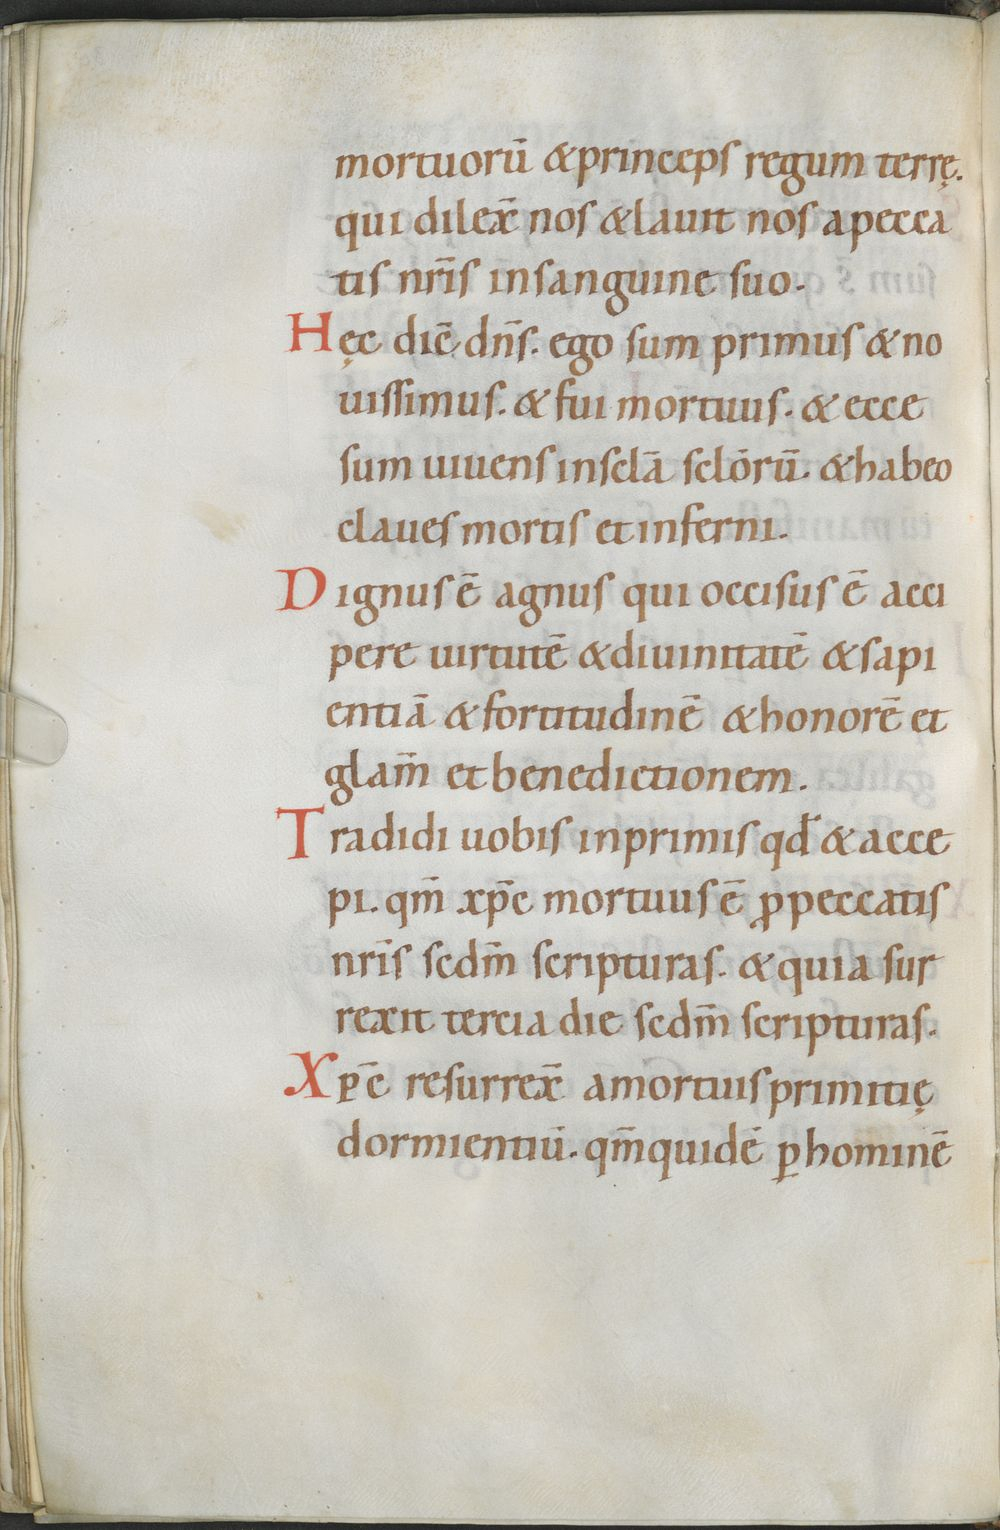 mortuorū & princeps regum terrę.
qui dilex̄ nos & lauit nos a pecca
tis nr̄is in sanguine suo.
Hęc dic̄ dn̄s. ego sum primus & no
uissimus. & fui mortuus. & ecce
sum uiuens in sclā sclōrū. & habeo
claues mortis et inferni.
Dignus ē agnus qui occisus ē acci
pere uirtutē & diuinitatē & sapi
entiā & fortitudinē & honorē et
glam̄ et benedictionem.
Tradidi uobis in primis qđ & acce
pi. qm̄ xp̄c mortuus ē ꝓ peccatis
nr̄is scdm̄ scripturas. & quia sur
rexit tercia die scdm̄ scripturas.
Xp̄c resurrex̄ a mortuis primitię
dormientiū. qm̄ quidē ꝑ hominē